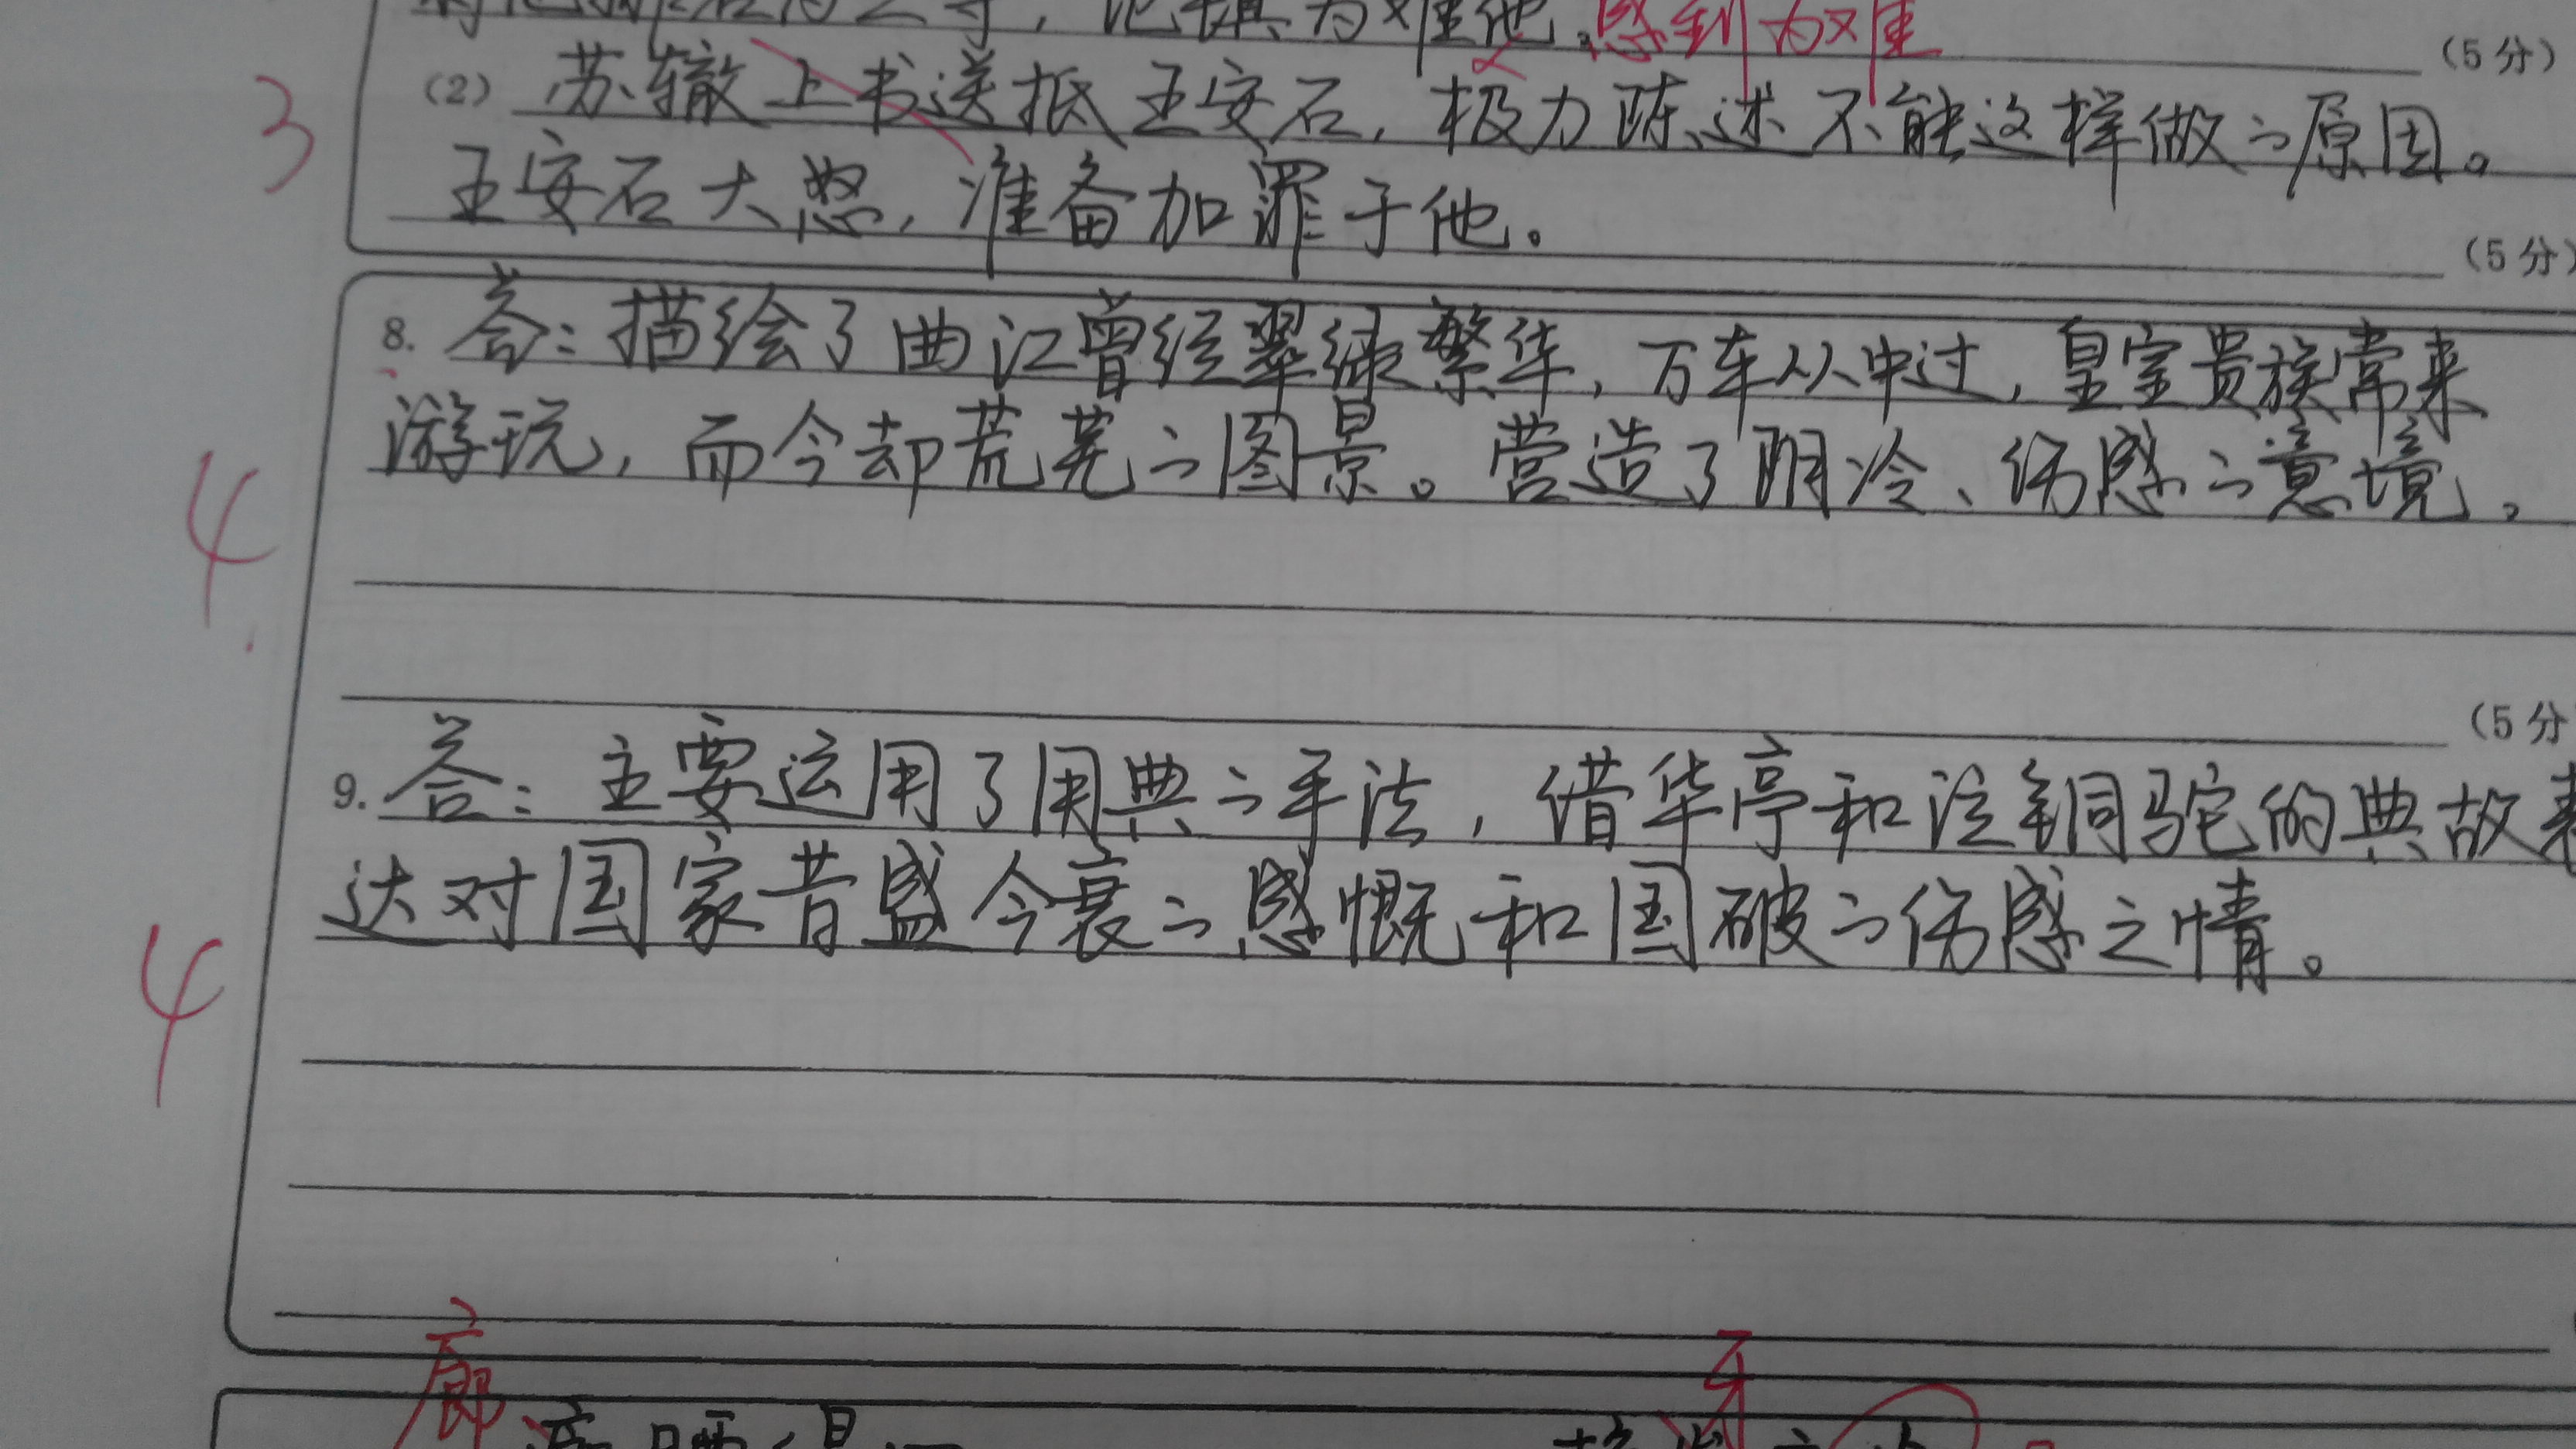 为难他。感到为难
(5分)
(2) 苏辙上书送抵王安石，极力陈述不能这样做的原因。
3
王安石大怒，准备加罪于他。
(5分)
8. 答：描绘了曲江曾经翠绿繁华，万车从中过，皇室贵族常来
游玩，而今却荒芜的图景。营造了阴冷、伤感的意境。
4
(5分
9. 答：主要运用了用典的手法，借华亭和泣铜驼的典故表
达对国家昔盛今衰的感慨和国破的伤感之情。
4
廊